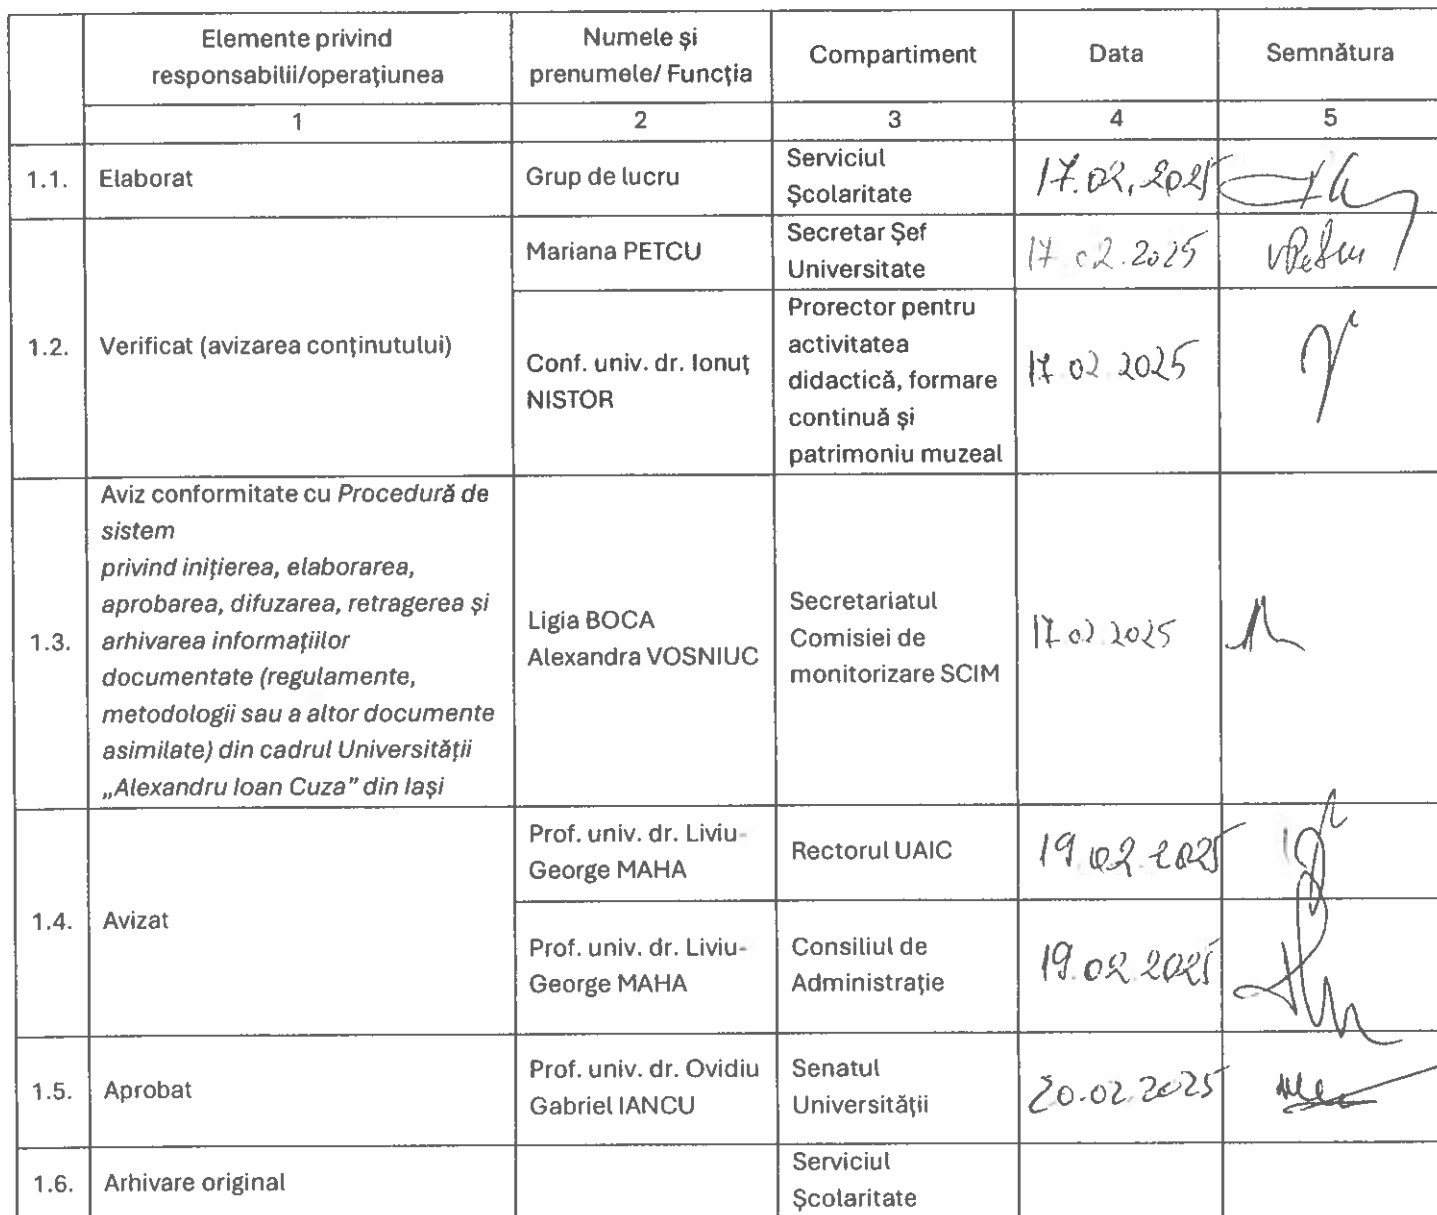 Elemente privind
responsabilii/operațiunea
Numele și
prenumele/ Funcția
Compartiment
Data
Semnătura
1
2
3
4
5
1.1.
Elaborat
Grup de lucru
Serviciul
Școlaritate
17.02.2025
1.2.
Verificat (avizarea conținutului)
Mariana PETCU
Secretar Șef
Universitate
17.02.2025
Conf. univ. dr. Ionuț
NISTOR
Prorector pentru
activitatea
didactică, formare
continuă și
patrimoniu muzeal
17.02.2025
1.3.
Aviz conformitate cu Procedură de
sistem
privind inițierea, elaborarea,
aprobarea, difuzarea, retragerea și
arhivarea informațiilor
documentate (regulamente,
metodologii sau a altor documente
asimilate) din cadrul Universității
„Alexandru Ioan Cuza” din Iași
Ligia BOCA
Alexandra VOSNIUC
Secretariatul
Comisiei de
monitorizare SCIM
17.02.2025
1.4.
Avizat
Prof. univ. dr. Liviu-
George MAHA
Rectorul UAIC
19.02.2025
Prof. univ. dr. Liviu-
George MAHA
Consiliul de
Administrație
19.02.2025
1.5.
Aprobat
Prof. univ. dr. Ovidiu
Gabriel IANCU
Senatul
Universității
20.02.2025
1.6.
Arhivare original
Serviciul
Școlaritate